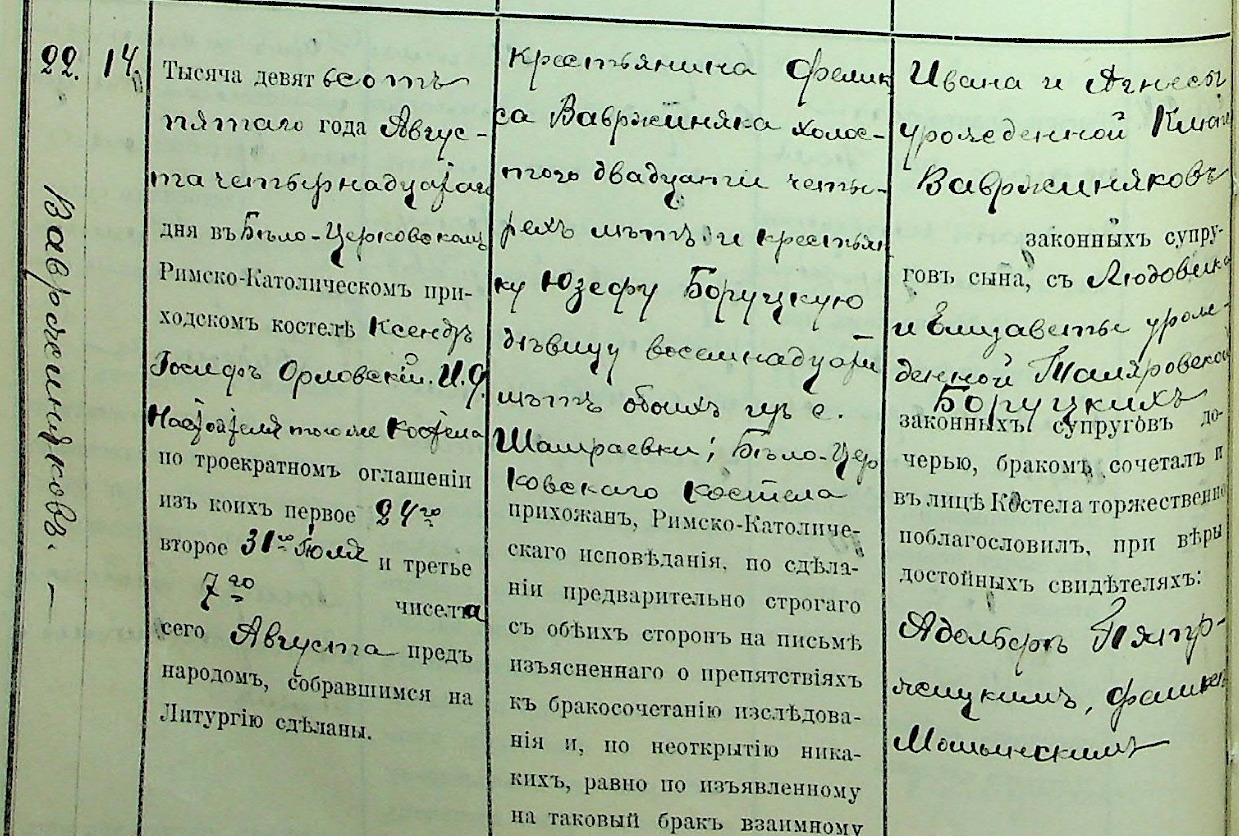 22.
14.
Вавржиняковъ. —
Тысяча девятьсотъ
пятаго года Авгус-
та четырнадцатаго
дня въ Бѣло-Церковскомъ
Римско-Католическомъ при-
ходскомъ костелѣ Ксендзъ
Іосифъ Орловскій. И.д.
Настоятеля того же Костела
по троекратномъ оглашеніи
изъ коихъ первое 24го
второе 31го Іюля и третье
7го чиселъ
сего Августа предъ
народомъ, собравшимся на
Литургію сдѣланы.
Крестьянина Фелик
са Вавржиняка холос-
того двадцати четы-
рехъ лѣтъ и крестьян
ку Юзефу Боруцкую
дѣвицу восемнадцати
лѣтъ обоихъ изъ с.
Шамраевки; Бѣло-Цер
ковскаго Костела
прихожан, Римско-Католиче-
скаго исповѣданія, по сдѣла-
ніи предварительно строгаго
съ обѣихъ сторонъ на письмѣ
изъясненнаго о препятствіяхъ
къ бракосочетанію изслѣдова-
нія и, по неоткрытію ника-
кихъ, равно по изъявленному
на таковый бракъ взаимному
Ивана и Агнесы
урожденной
Вавржиняковъ
законныхъ супру-
говъ сына, съ Людовика
и Елизаветы урож-
денной Маляровской
Боруцкихъ
законныхъ супруговъ до-
черью, бракомъ сочеталъ и
въ лицѣ Костела торжественно
поблагословилъ, при вѣры
достойныхъ свидѣтеляхъ:
Адельберъ
Феликсъ